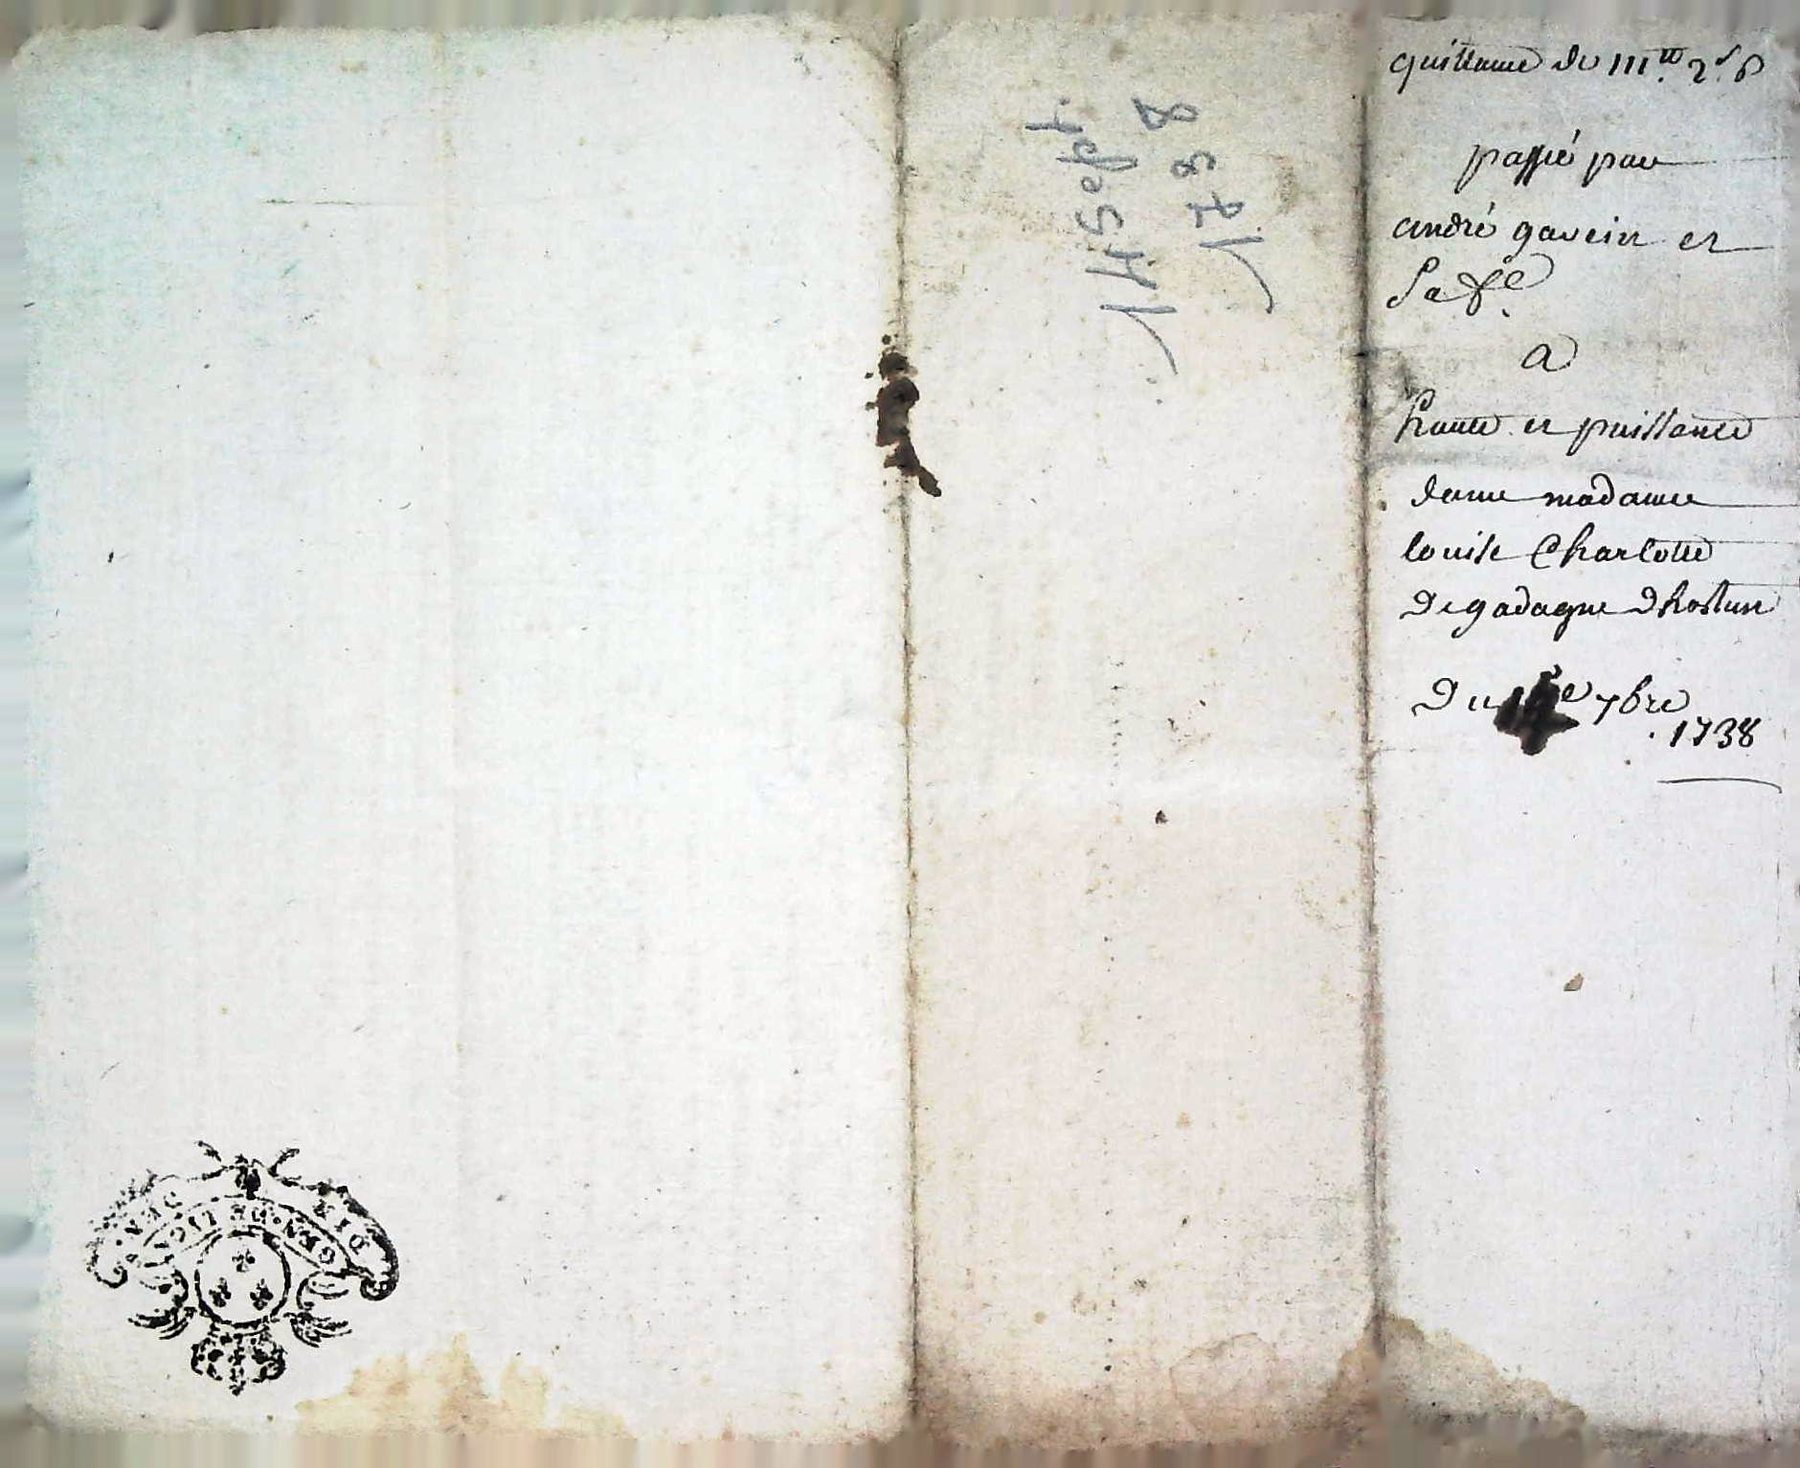 quittance du 111.tt 2.s 6
passé par
andré gavein et
Sa fe.
a
haute et puissante
dame madame
louise Charlotte
De gadagne Dhostun
Du 14e 7bre
1738
14 Sept
1738
GEN. DE